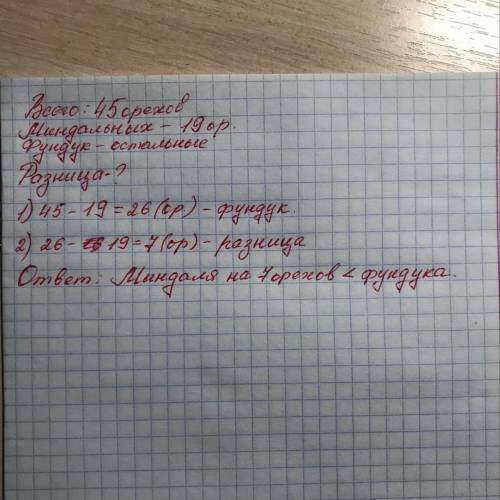 Всего: 45 орехов
Миндальных - 19 ор.
Фундук - остальные
Разница - ?
1) 45 - 19 = 26 (ор.) - фундук.
2) 26 - 19 = 7 (ор) - разница
Ответ: Миндаля на 7 орехов < фундука.